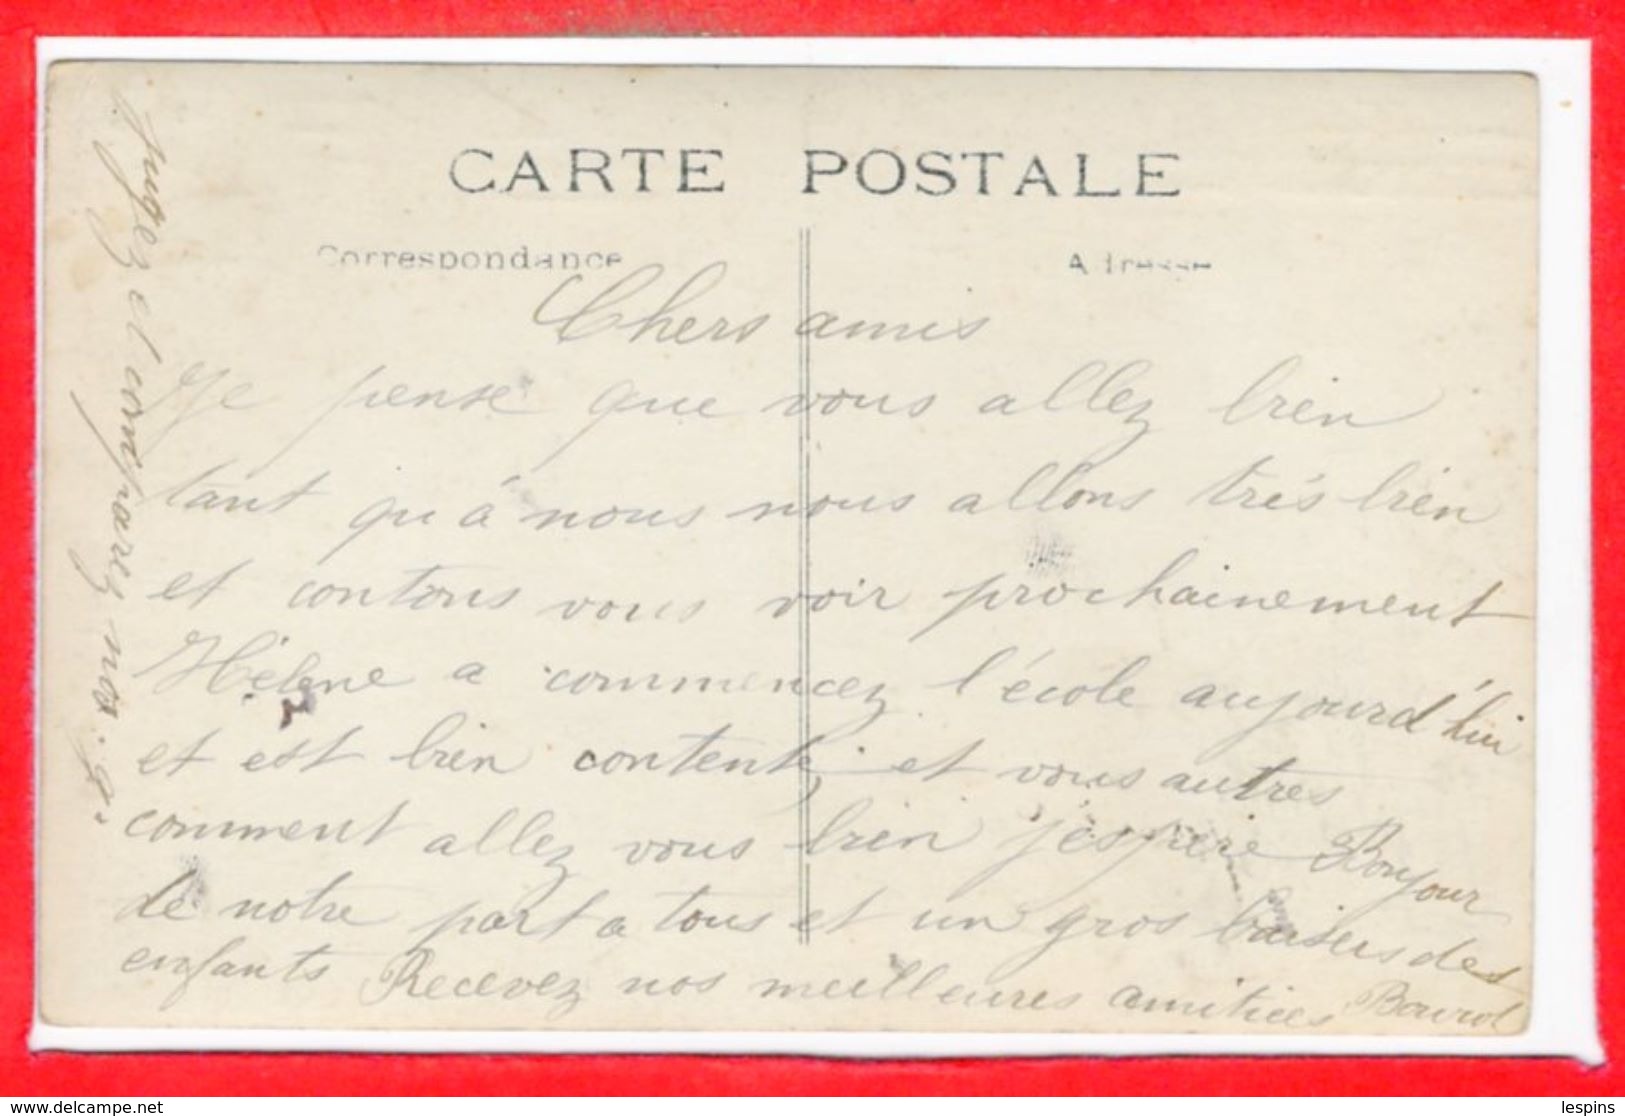 CARTE POSTALE
Correspondance
Adresse
Chers amis
Je pense que vous allez bien
tant qu'à nous nous allons très bien
et contons vous voir prochainement
Hélène a commencez l'école aujourd'hui
et est bien contente, et vous autres
comment allez vous bien j'éspère Bonjour
de notre part a tous et un gros baisers des
enfants Recevez nos meilleures amitiées
jugez et comparez nos
lespins